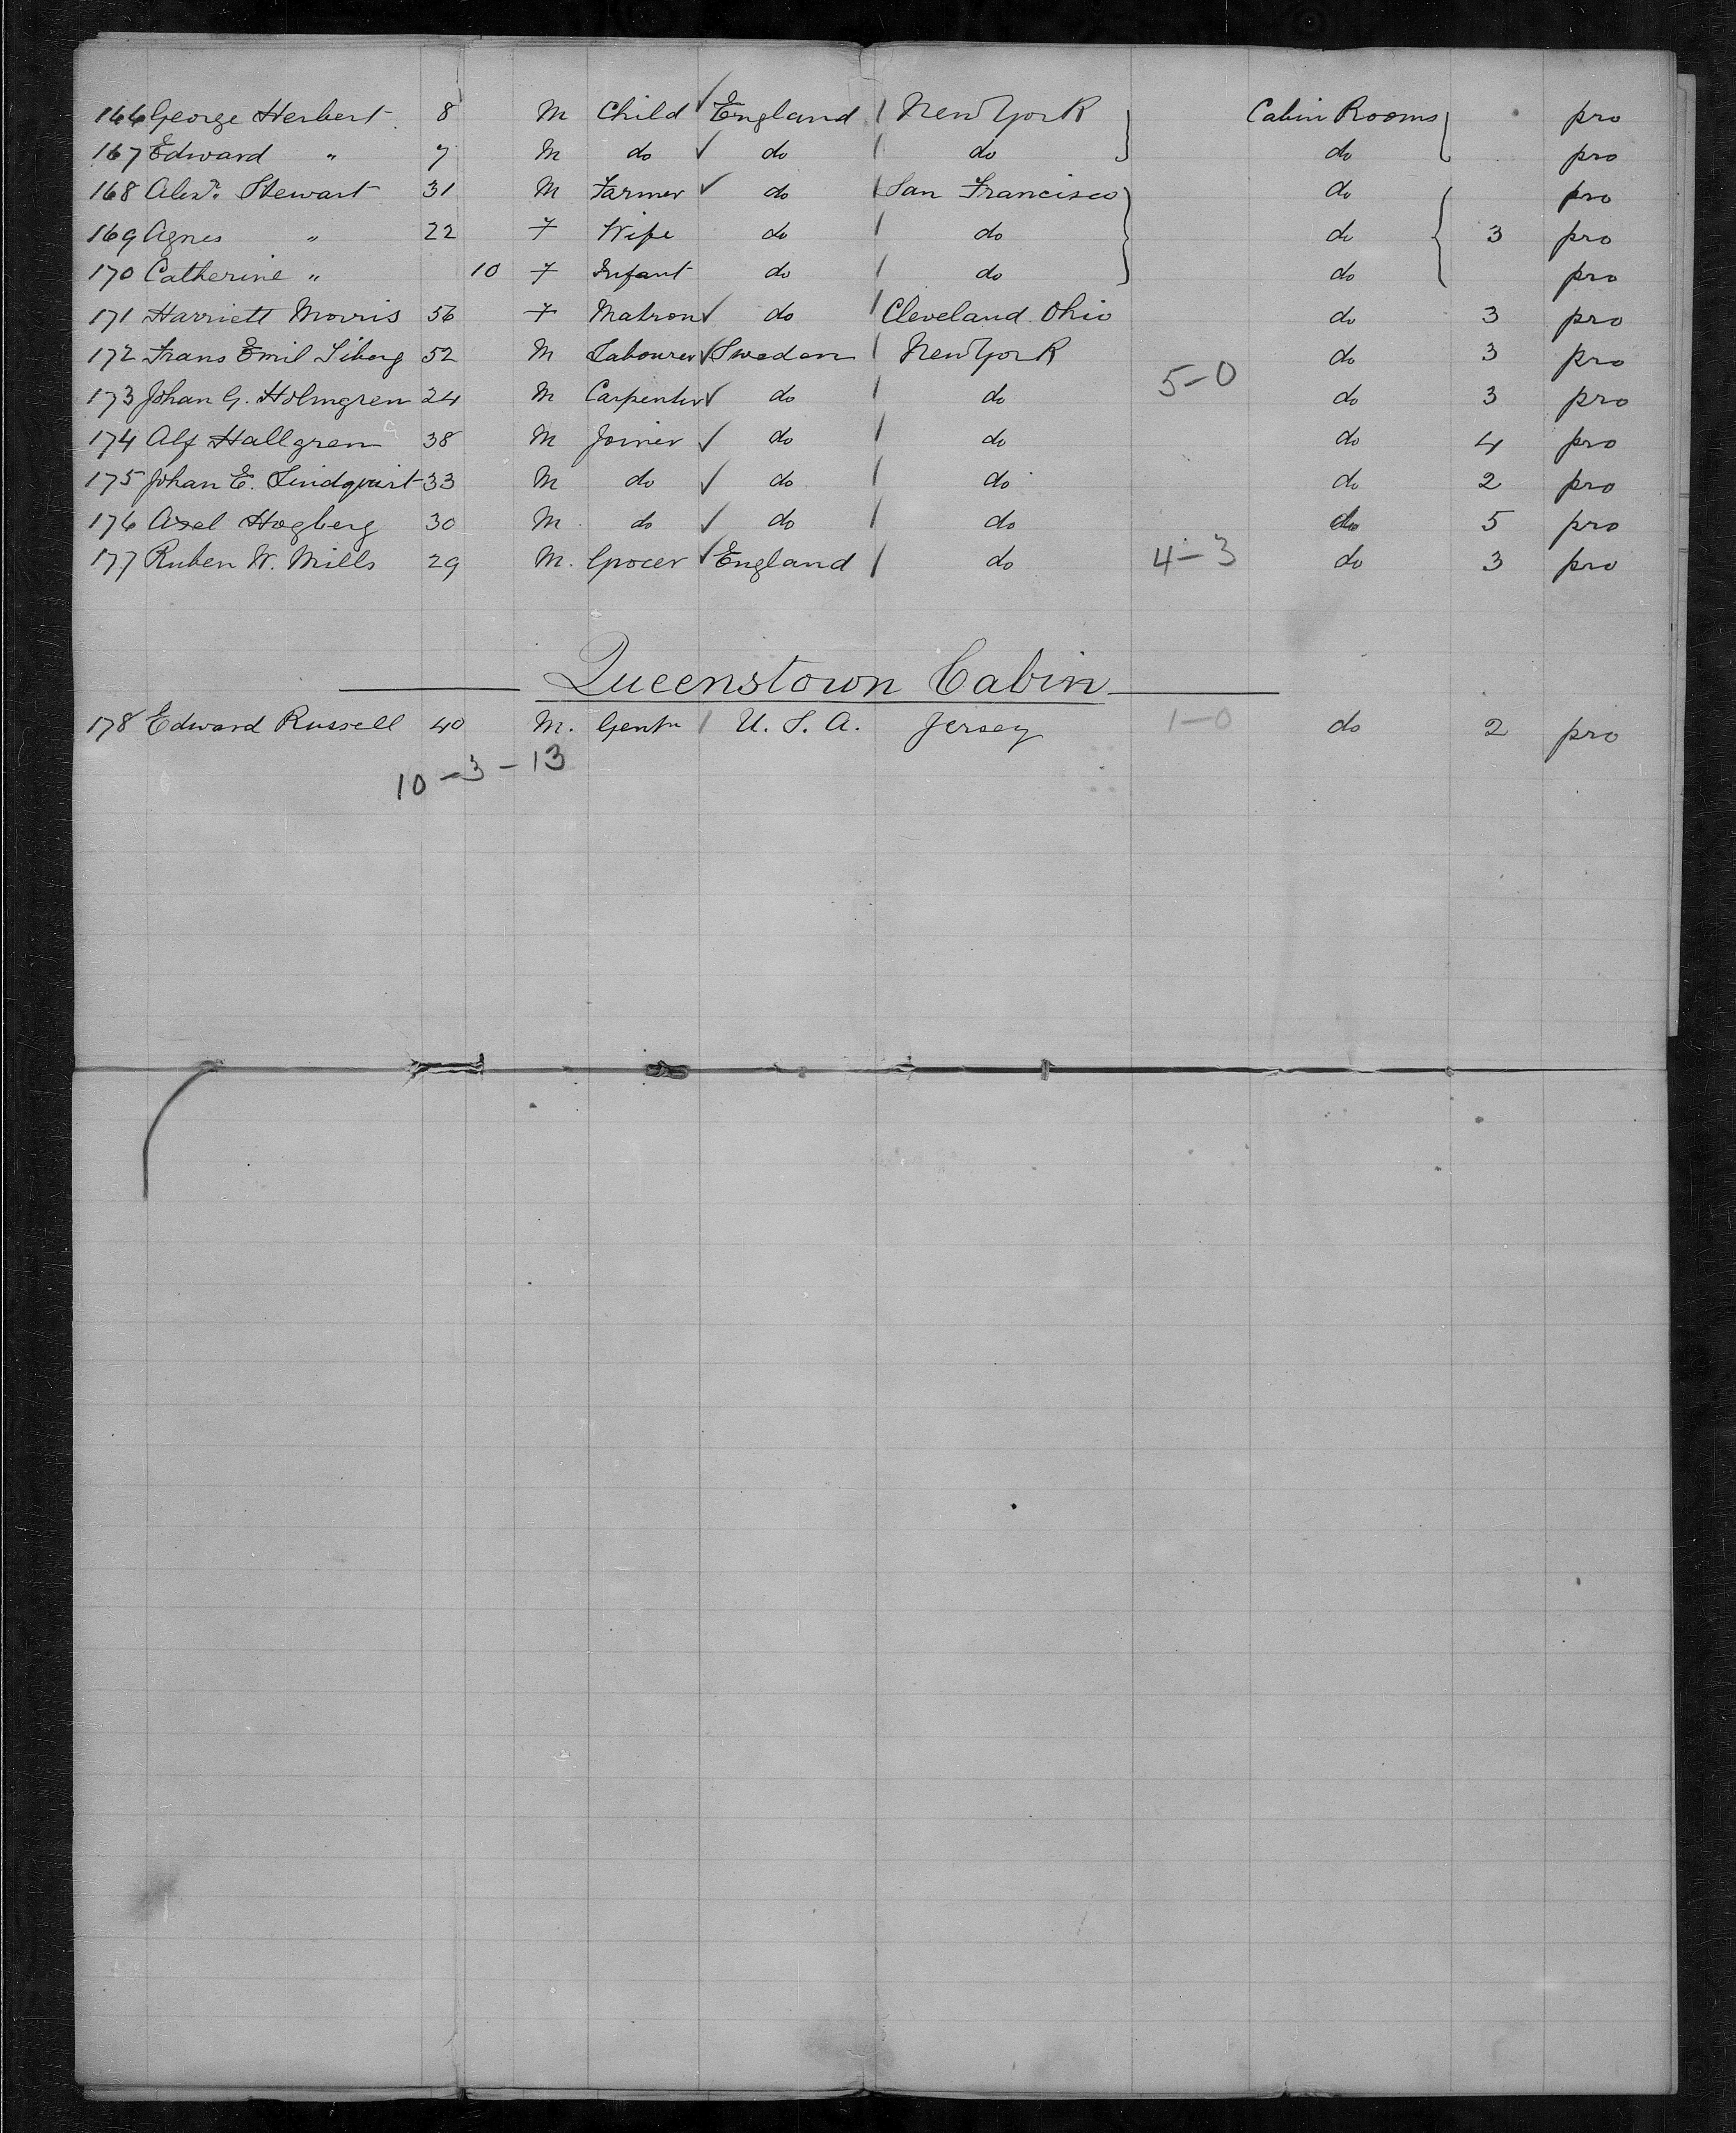 166 George Herbert 8 M Child ✓ England / New York Cabin Rooms pro
167 Edward " 7 M do ✓ do / do do pro
168 Alexr. Stewart 31 M Farmer ✓ do / San Francisco do pro
169 Agnes " 22 F Wife do / do do 3 pro
170 Catherine " 10 F Infant do / do do pro
171 Harriett Morris 56 F Matron ✓ do / Cleveland Ohio do 3 pro
172 Frans Emil Siberg 52 M Labourer ✓ Sweden / New York do 3 pro
173 Johan G. Holmgren 24 M Carpenter ✓ do / do 5-0 do 3 pro
174 Alf Hallgren 38 M Joiner ✓ do / do do 4 pro
175 Johan E. Lindqvist 33 M do ✓ do / do do 2 pro
176 Axel Hogberg 30 M. do ✓ do / do do 5 pro
177 Ruben W. Mills 29 M. Grocer ✓ England / do 4-3 do 3 pro
Queenstown Cabin
178 Edward Russell 40 M. Gentn / U. S. A. Jersey 1-0 do 2 pro
10-3-13